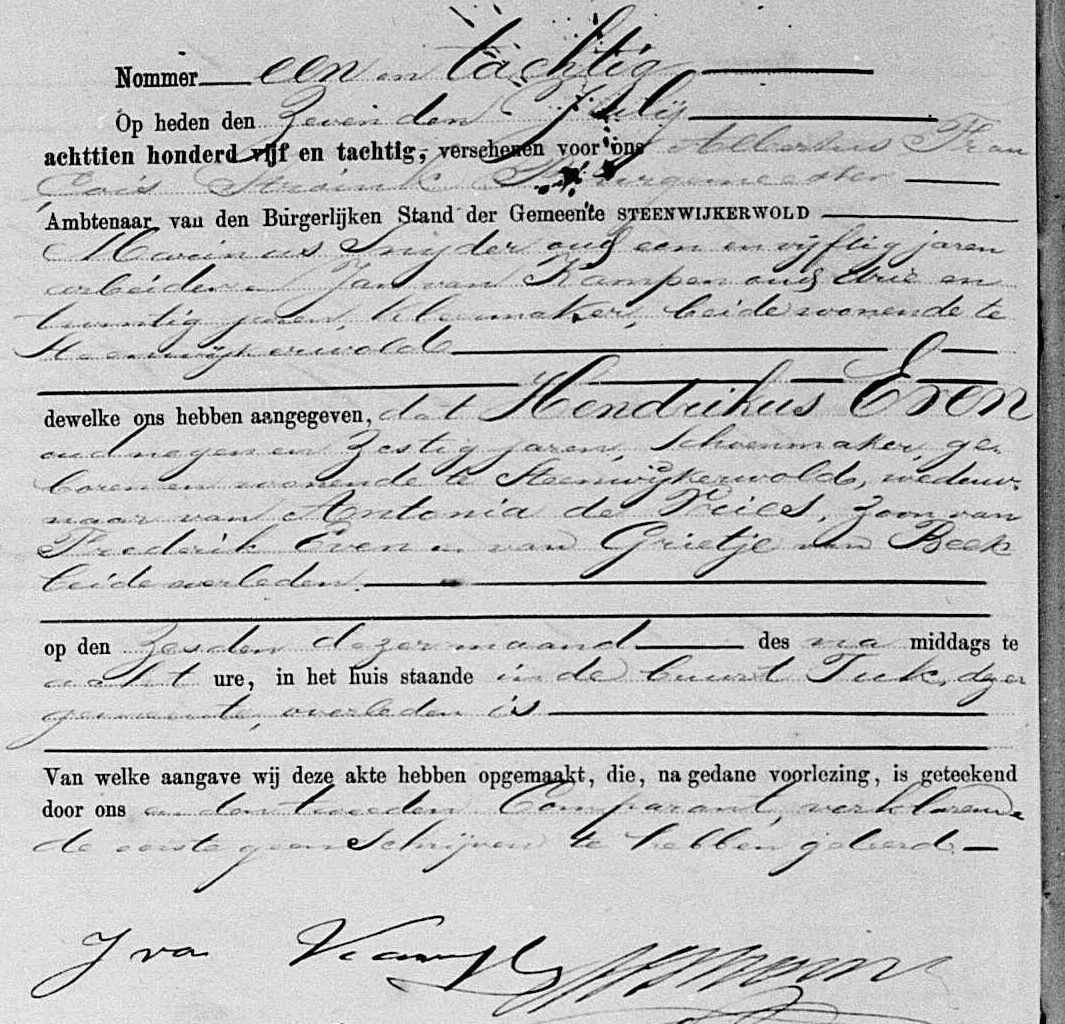 Nommer een en tachtig
Op heden den Zevenden Julij
achttien honderd vijf en tachtig, verschenen voor ons Albertus Fran
çois Stroink Burgemeester
Ambtenaar van den Burgerlijken Stand der Gemeente STEENWIJKERWOLD
Marinus Snijder oud een en vijftig jaren
arbeider en Jan van Kampen oud drie en
twintig jaren, klermaker, beide wonende te
Steenwijkerwold
dewelke ons hebben aangegeven, dat Hendrikus Even
oud negen en Zestig jaren, Schoenmaker, ge-
boren en wonende te Steenwijkerwold, weduw-
naar van Antonia de Vries, Zoon van
Frederik Even en van Grietje van Beek
beide overleden
op den Zesden dezer maand des na middags te
acht ure, in het huis staande in de buurt Tuk, dezer
gemeente, overleden is
Van welke aangave wij deze akte hebben opgemaakt, die, na gedane voorlezing, is geteekend
door ons en den tweeden Comparant, verklarende
de eerste geen Schrijven te hebben geleerd
J van Kamp